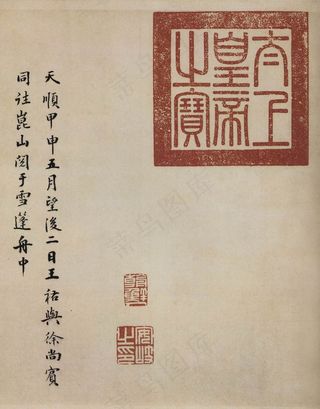 太上
皇帝
之寶
安岐
之印
天順甲申五月望後二日王祐與徐尚賓
同往崑山閱于雪篷舟中
菜鸟图库